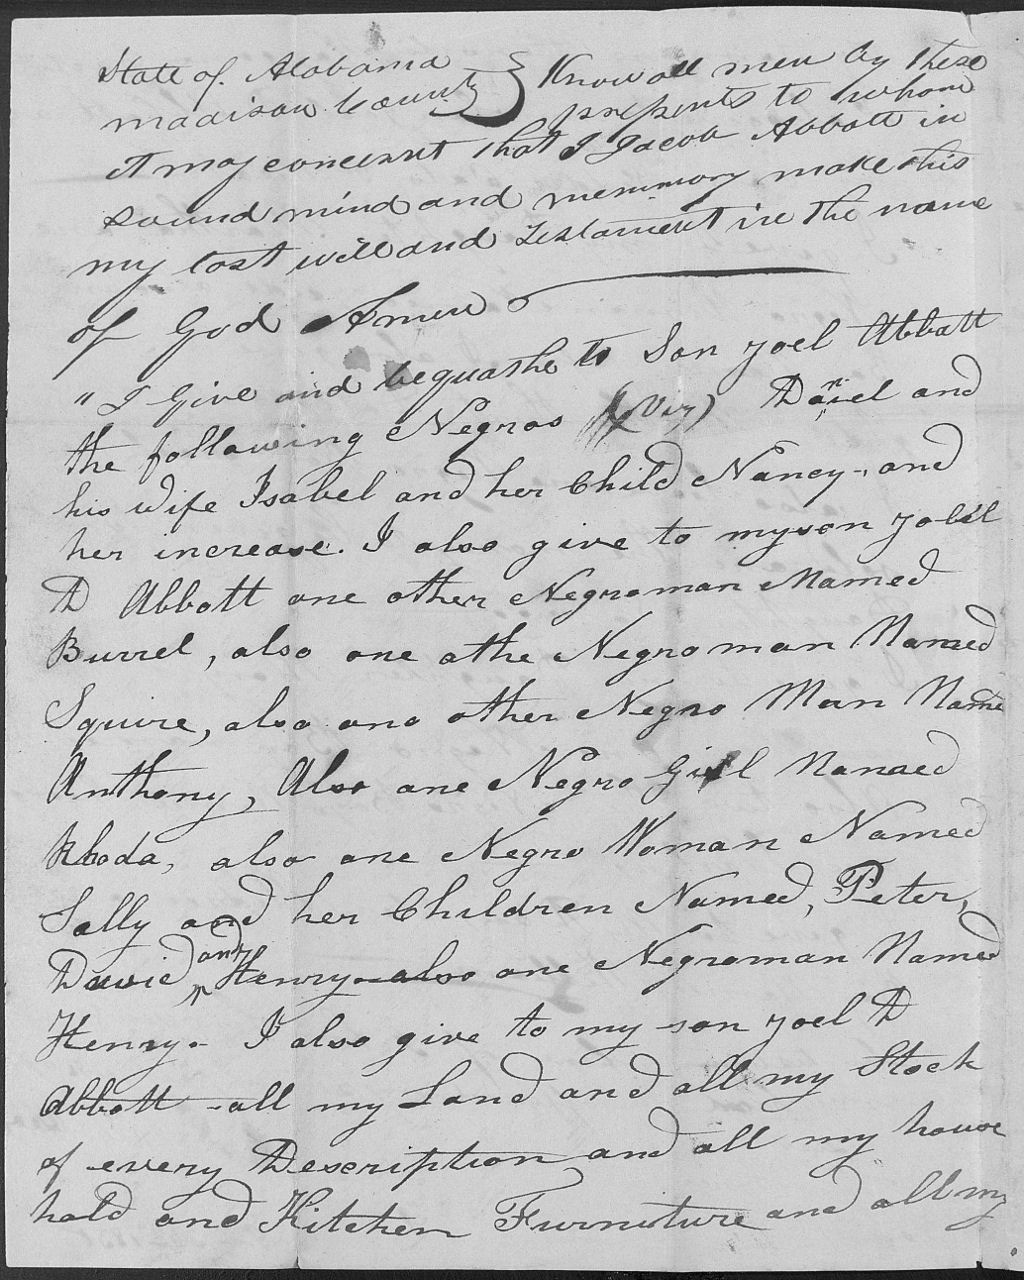 State of Alabama } Know all men by these
Madison County } presents to whom
it may concernt that I Jacob Abbott in
sound mind and memmory make this
my last will and Testament in the name
of God Amen
" I Give and bequashe to Son Joel Abbott
the following Negros (Viz) Daniel and
his wife Isabel and her Child Nancy, and
her increase. I also give to my son Joel
D Abbott one other Negroman Named
Burrel, also one othe Negro man Named
Squire, also one other Negro Man Name
Anthony, Also one Negro Girl Named
Rhoda, also one Negro Woman Named
Sally and her Children Named, Peter,
David and Henry also one Negroman Named
Henry. I also give to my son Joel D
Abbott all my Land and all my Stock
of every Description and all my house
hold and Kitchen Furnuture and all my